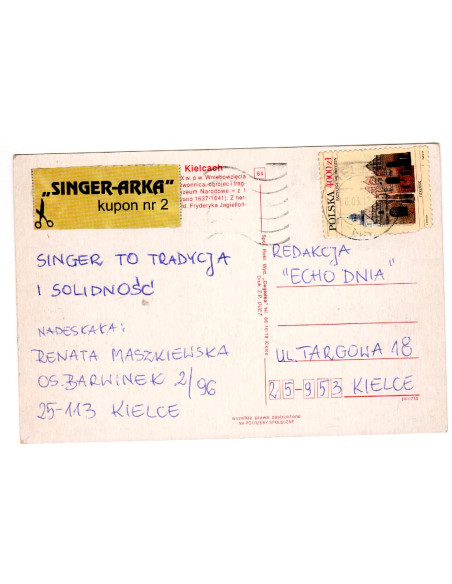 Kielcach
X w. p.w. Wniebowzięcia
wownica, ogrojec i frag-
zeum Narodowe – z l
ano 1637-1641). Z her-
d. Fryderyka Jagiellon-
„SINGER-ARKA"
kupon nr 2
SINGER TO TRADYCJA
I SOLIDNOŚĆ
NADESŁAŁA:
RENATA MASZKIEWSKA
OS. BARWINEK 2/96
25-113 KIELCE
64
POLSKA 4000 zł
REDAKCJA
"ECHO DNIA"
UL. TARGOWA 18
25-953 KIELCE
poczta
wszelkie prawa zastrzeżone
NA PODZIELNY SPOŁECZNE